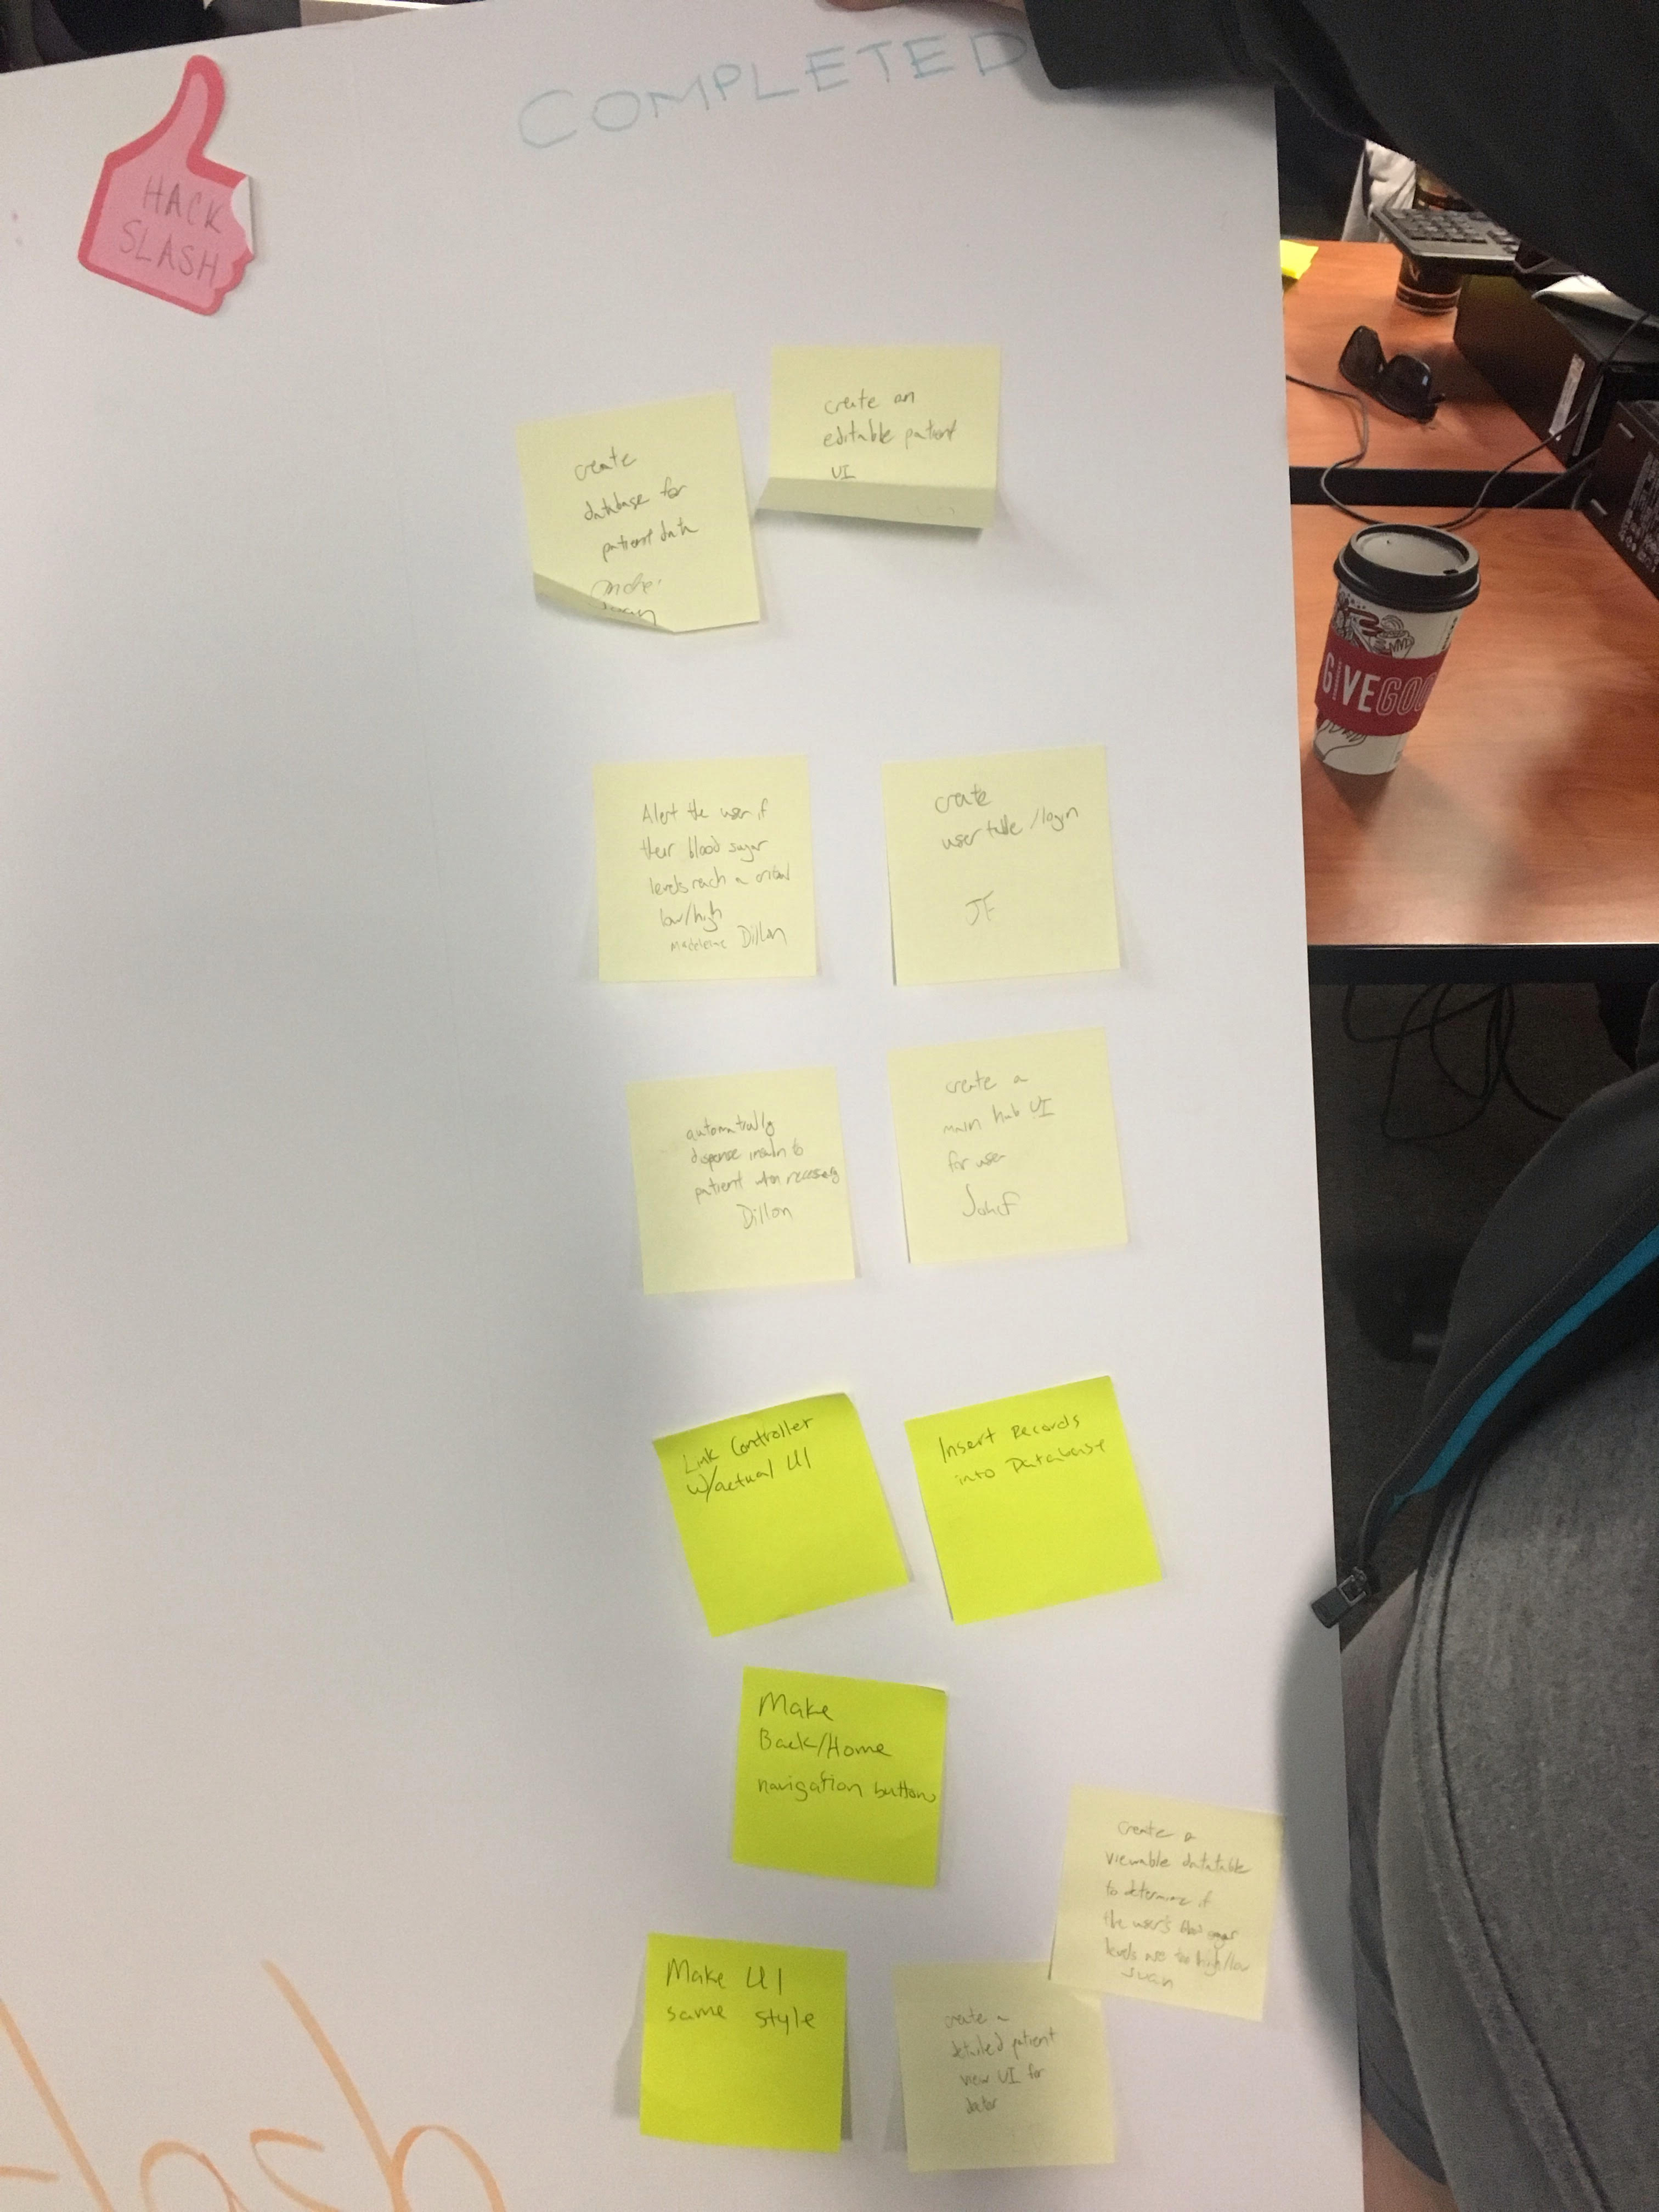 COMPLETED
HACK
SLASH
create
database for
patient data
create an
editable patient
UI
Alert the user if
their blood sugar
levels reach a critical
low/high
Madeleine Dillon
create
user table /login
JF
automatically
dispense insulin to
patient when necessary
Dillon
create a
main hub UI
for user
Link Controller
w/actual UI
Insert Records
into Database
Make
Back/Home
navigation button
create a
viewable datatable
to determine if
the user's blood sugar
levels are too high/low
Juan
Make UI
same style
create a
detailed patient
view UI for
doctor
lash
GIVEGOO